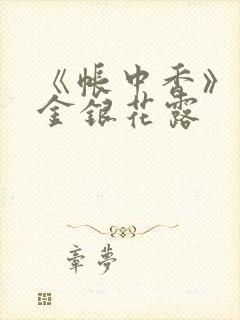 《帐中香》
金银花露
章梦